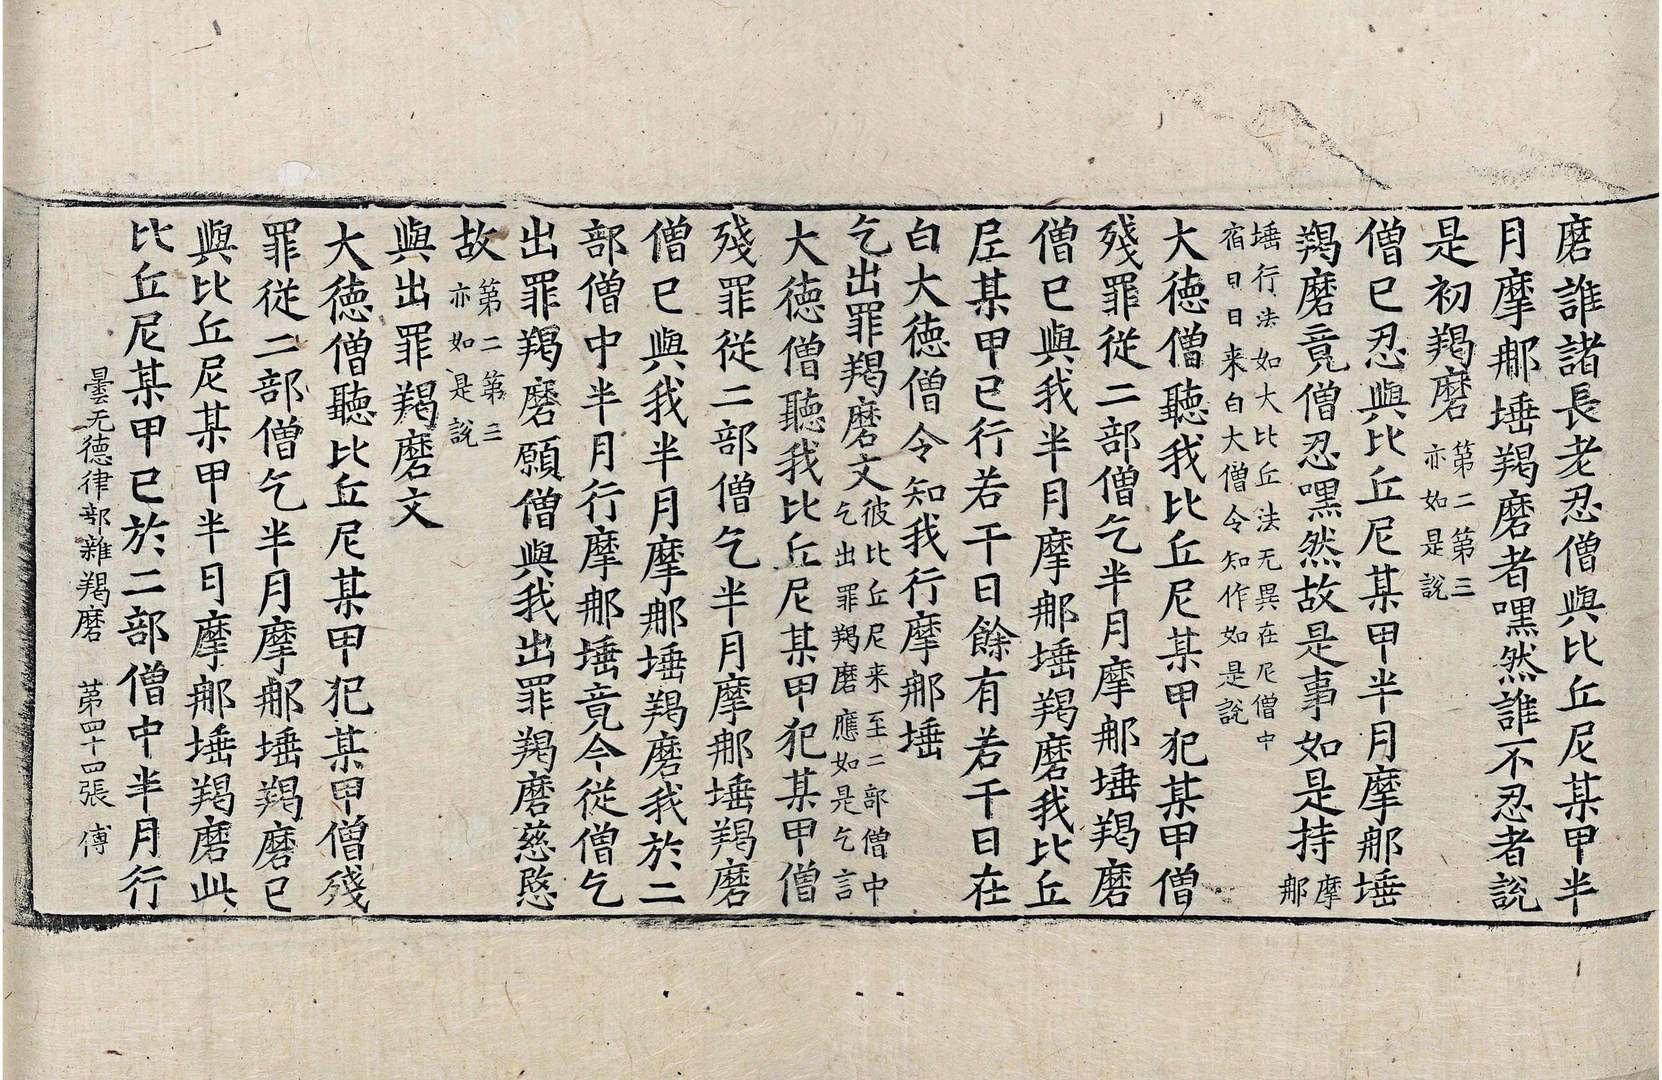 磨誰諸長老忍僧與比丘尼某甲半
月摩那埵羯磨者嘿然誰不忍者說
是初羯磨第二第三亦如是說
僧已忍與比丘尼某甲半月摩那埵
羯磨竟僧忍嘿然故是事如是持摩那
埵行法如大比丘法无異在尼僧中
宿日日来白大僧令知作如是說
大德僧聽我比丘尼某甲犯某甲僧
殘罪從二部僧乞半月摩那埵羯磨
僧已與我半月摩那埵羯磨我比丘
尼某甲已行若干日餘有若干日在
白大德僧令知我行摩那埵
乞出罪羯磨文彼比丘尼来至二部僧中乞出罪羯磨應如是乞言
大德僧聽我比丘尼某甲犯某甲僧
殘罪從二部僧乞半月摩那埵羯磨
僧已與我半月摩那埵羯磨我於二
部僧中半月行摩那埵竟今從僧乞
出罪羯磨願僧與我出罪羯磨慈愍
故第二第三亦如是說
與出罪羯磨文
大德僧聽比丘尼某甲犯某甲僧殘
罪從二部僧乞半月摩那埵羯磨已
與比丘尼某甲半月摩那埵羯磨此
比丘尼某甲已於二部僧中半月行
曇无德律部雜羯磨 第四十四張 傳